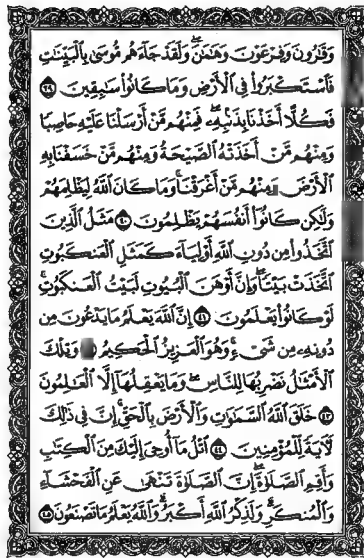 وَقَٰرُونَ وَفِرْعَوْنَ وَهَٰمَٰنَ ۖ وَلَقَدْ جَآءَهُم مُّوسَىٰ بِٱلْبَيِّنَٰتِ
فَٱسْتَكْبَرُوا۟ فِى ٱلْأَرْضِ وَمَا كَانُوا۟ سَٰبِقِينَ ٣٩
فَكُلًّا أَخَذْنَا بِذَنۢبِهِۦ ۖ فَمِنْهُم مَّنْ أَرْسَلْنَا عَلَيْهِ حَاصِبًا
وَمِنْهُم مَّنْ أَخَذَتْهُ ٱلصَّيْحَةُ وَمِنْهُم مَّنْ خَسَفْنَا بِهِ
ٱلْأَرْضَ وَمِنْهُم مَّنْ أَغْرَقْنَا ۚ وَمَا كَانَ ٱللَّهُ لِيَظْلِمَهُمْ
وَلَٰكِن كَانُوٓا۟ أَنفُسَهُمْ يَظْلِمُونَ ٤٠ مَثَلُ ٱلَّذِينَ
ٱتَّخَذُوا۟ مِن دُونِ ٱللَّهِ أَوْلِيَآءَ كَمَثَلِ ٱلْعَنكَبُوتِ
ٱتَّخَذَتْ بَيْتًا ۖ وَإِنَّ أَوْهَنَ ٱلْبُيُوتِ لَبَيْتُ ٱلْعَنكَبُوتِ ۖ
لَوْ كَانُوا۟ يَعْلَمُونَ ٤١ إِنَّ ٱللَّهَ يَعْلَمُ مَا يَدْعُونَ مِن
دُونِهِۦ مِن شَىْءٍ ۚ وَهُوَ ٱلْعَزِيزُ ٱلْحَكِيمُ وَتِلْكَ
ٱلْأَمْثَٰلُ نَضْرِبُهَا لِلنَّاسِ ۖ وَمَا يَعْقِلُهَآ إِلَّا ٱلْعَٰلِمُونَ
٤٣ خَلَقَ ٱللَّهُ ٱلسَّمَٰوَٰتِ وَٱلْأَرْضَ بِٱلْحَقِّ ۚ إِنَّ فِى ذَٰلِكَ
لَءَايَةً لِّلْمُؤْمِنِينَ ٤٤ ٱتْلُ مَآ أُوحِىَ إِلَيْكَ مِنَ ٱلْكِتَٰبِ
وَأَقِمِ ٱلصَّلَوٰةَ ۖ إِنَّ ٱلصَّلَوٰةَ تَنْهَىٰ عَنِ ٱلْفَحْشَآءِ
وَٱلْمُنكَرِ ۗ وَلَذِكْرُ ٱللَّهِ أَكْبَرُ ۗ وَٱللَّهُ يَعْلَمُ مَا تَصْنَعُونَ ٤٥